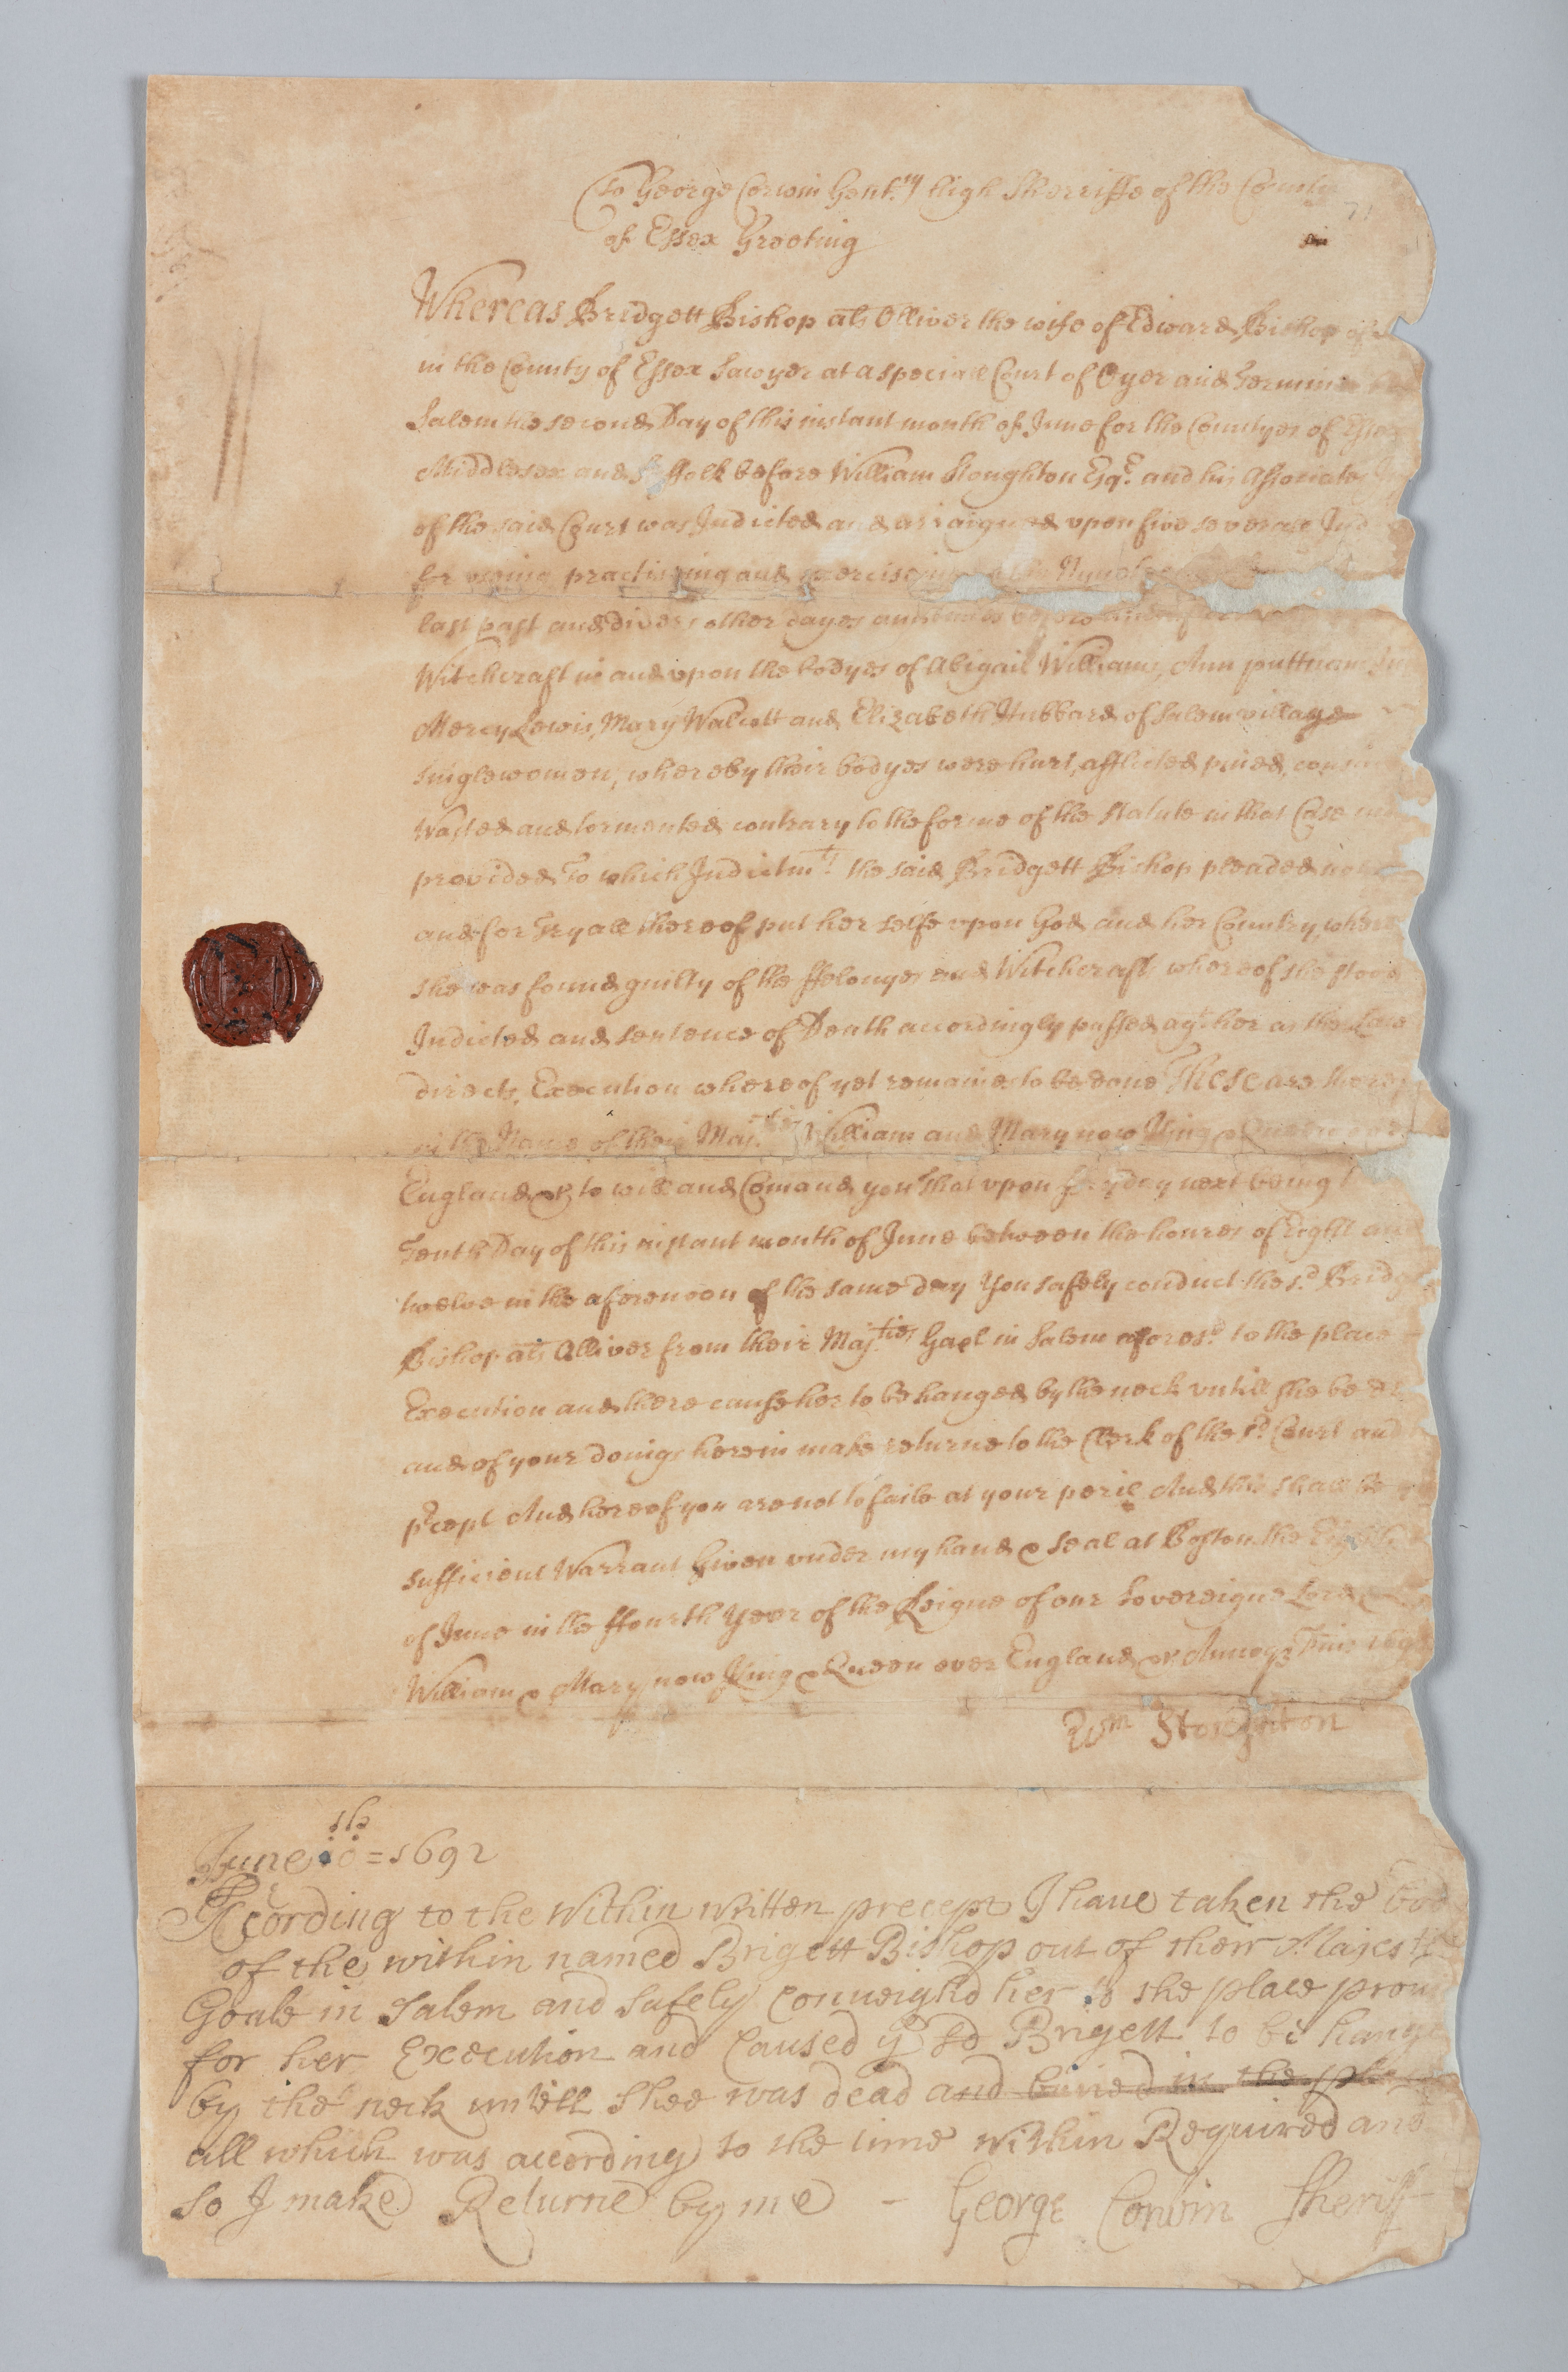 To George Corwin Gentm high Sherriffe of the County
of Essex Greeting
Whereas Bridgett Bishop als Olliver the wife of Edward Bishop of
in the County of Essex Sawyer at a speciall Court of Oyer and Terminer
Salem the second Day of this instant month of June for the Countyes of Essex
Middlesex and Suffolk before William Stoughton Esqr. and his Associates
of the said Court was Indicted and arraigned upon five severall
for useing practiseing and exerciseing
last past and divers other dayes and times before and after
Witchcraft in and upon the bodyes of Abigail Williams, Ann puttnam
Mercy Lewis, Mary Walcott and Elizabeth Hubbard of Salem village
singlewomen, whereby their bodyes were hurt, afflicted pined, consumed
Wasted and tormented contrary to the forme of the Statute in that Case
provided To which Indictmts the said Bridgett Bishop pleaded not
and for Tryall thereof put her selfe upon God and her Country, where
she was found guilty of the ffelonyes and Witchcrafts whereof she stood
Indicted and sentence of Death accordingly passed agt her as the Law
directs, Execution whereof yet remaines to be done These are
in the Name of their Majties William and Mary now King & Queen over
England &c to will and Comand you That upon fryday next being
Tenth Day of this instant month of June between the houres of Eight and
twelve in the aforenoon of the same day You safely conduct the sd. Bridgett
Bishop als Olliver from their Majties Gaol in Salem aforesd. to the place
Execution and there cause her to be hanged by the neck untill she be
and of your doings herein make returne to the Clerk of the sd. Court and
pʳcept And hereof you are not to faile at your peril And this shall be
sufficient Warrant Given under my hand & seal at Boston. the Eighth
of June in the ffourth Year of the Reigne of our Sovereigne Lord &
William & Mary now King & Queen over England &c Annoqe Dni 1692
Wm Stoughton
June 10th = 1692
Acording to the Within written precept I have taken the
of the within named Brigett Bishop out of their Majesties
Goale in Salem and Safely Conveighd her to the place
for her Execution and Caused ye sd Brigett to be hanged
by the neck untill Shee was dead and buried in the
all which was according to the time within Required and
So I make Returne by me - George Corwin Sheriff